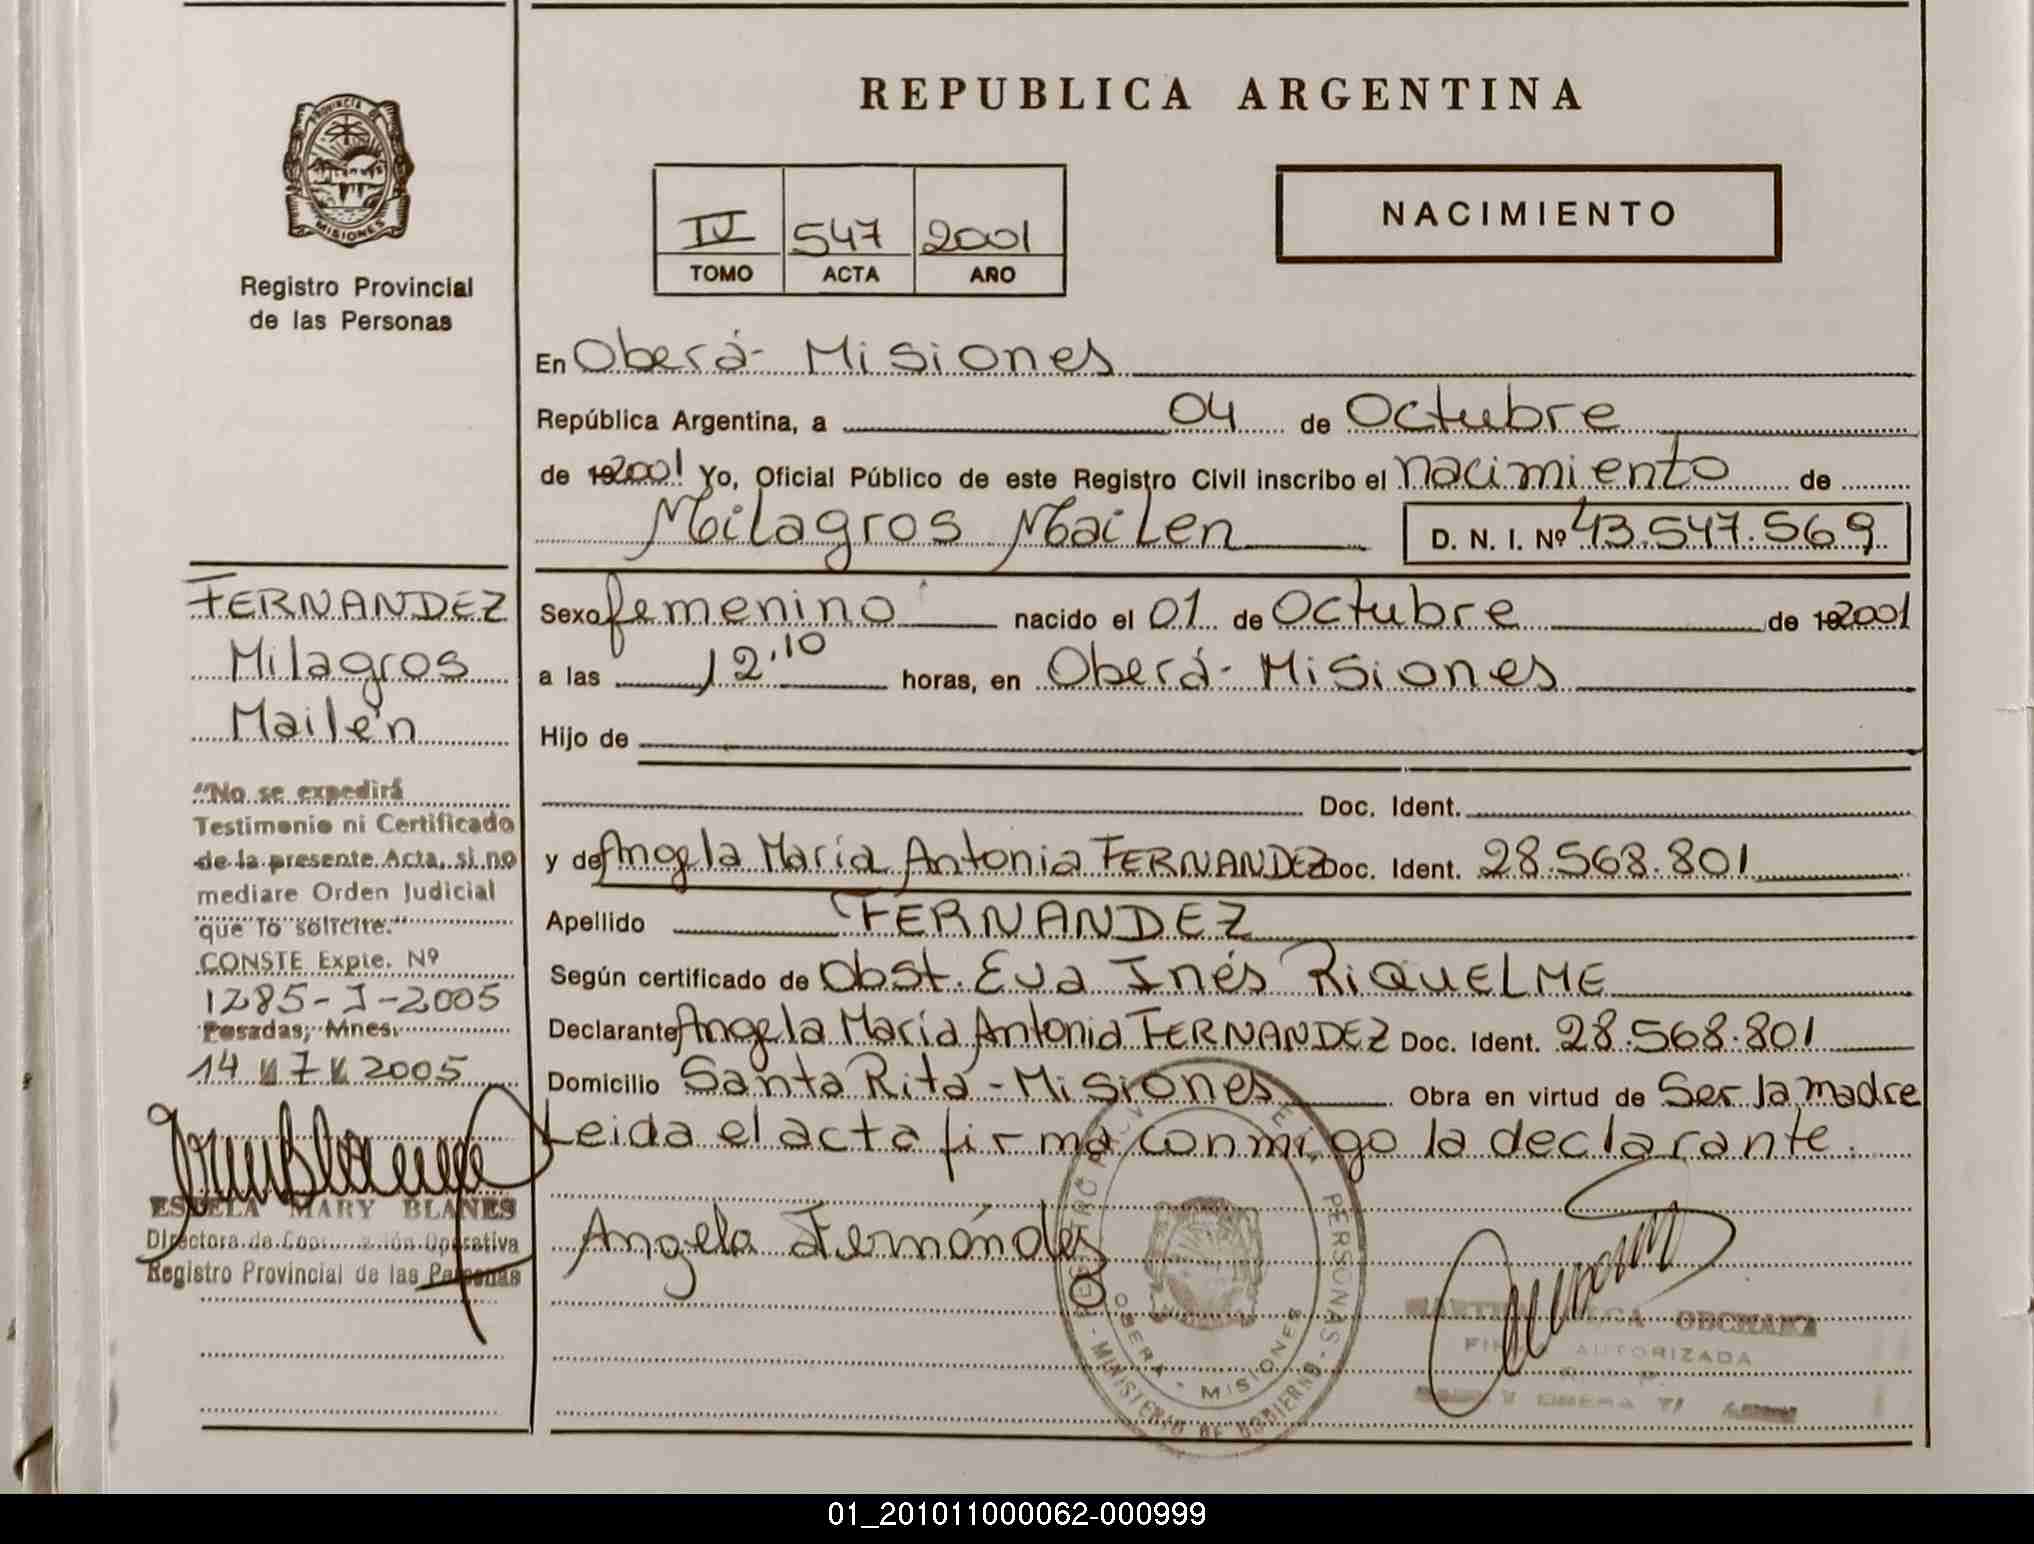 PROVINCIA DE
MISIONES
Registro Provincial
de las Personas
REPUBLICA ARGENTINA
IV 547 2001
TOMO ACTA AÑO
NACIMIENTO
En Oberá - Misiones
República Argentina, a 04 de Octubre
de 19 2001 Yo, Oficial Público de este Registro Civil inscribo el nacimiento de
Milagros Mailen D. N. I. Nº 43.547.569
Sexo femenino nacido el 01 de Octubre de 19 2001
a las 12.10 horas, en Oberá - Misiones
Hijo de
Doc. Ident.
y de Angela María Antonia FERNANDEZ Doc. Ident. 28.568.801
Apellido FERNANDEZ
Según certificado de Obst. Eva Inés RIQUELME
Declarante Angela María Antonia FERNANDEZ Doc. Ident. 28.568.801
Domicilio Santa Rita - Misiones Obra en virtud de Ser la madre
Leida el acta firma conmigo la declarante.
Angela Fernández
FERNANDEZ
Milagros
Mailén
"No se expedirá
Testimonio ni Certificado
de la presente Acta, si no
mediare Orden Judicial
que lo solicite."
CONSTE Expte. Nº
1285-J-2005
Posadas, Mnes.
14 7 2005
ESTELA MARY BLANES
Directora de Operativa
Registro Provincial de las Personas
PERSONAS - MINISTERIO DE GOBIERNO -
OBERA - MISIONES
AUTORIZADA
01_201011000062-000999